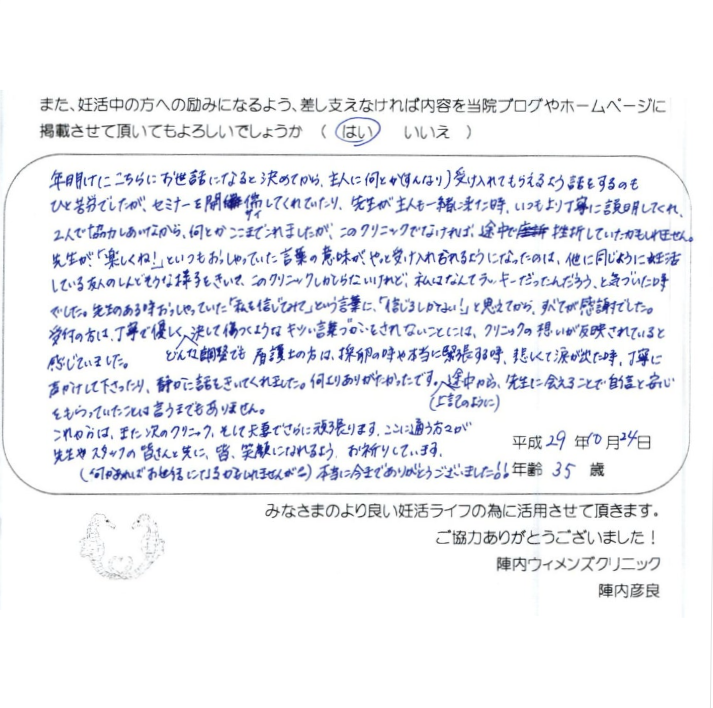 また、妊活中の方への励みになるよう、差し支えなければ内容を当院ブログやホームページに
掲載させて頂いてもよろしいでしょうか （ はい いいえ ）
年明けにこちらにお世話になると決めてから、主人に何とか(すんなり)受け入れてもらえるよう話をするのも
ひと苦労でしたが、セミナーを開催してくれていたり、先生が主人も一緒に来た時、いつもより丁寧に説明してくれ、
2人で協力しあいながら、何とかここまでこれましたが、このクリニックでなければ、途中で挫折していたかもしれません。
先生が、「楽しくね！」といつもおっしゃっていた言葉の意味がやっと受け入れられるようになったのは、他に同じように妊活
している友人のしんどそうな様子をきいて、このクリニックしかしらないけれど、私はなんてラッキーだったんだろう、と気づいた時
でした。先生のある時おっしゃっていた「私を信じてみて」という言葉に、「信じるしかない！」と思えてから、すべてが感謝でした。
受付の方は、丁寧で優しく、決して傷つくようなキツい言葉をされないことには、クリニックの想いが反映されていると
感じていました。 どんな時でも看護士の方は、採卵の時や本当に緊張する時、悲しくて涙が出た時、丁寧に
声かけして下さったり、静かに話をきいてくれました。何よりありがたかったです。途中から、先生に会えることで自信と安心
をもらっていたことは言うまでもありません。 (上記のように)
これからは、また次のクリニック、そして夫妻でさらに頑張ります。ここに通う方々が
先生やスタッフの皆さんと共に、皆、笑顔になれるよう、お祈りしています。
(何かあればお世話になるかもしれませんが) 本当に今までありがとうございました!!
平成 29 年 10 月 24 日
年齢 35 歳
みなさまのより良い妊活ライフの為に活用させて頂きます。
ご協力ありがとうございました！
陣内ウィメンズクリニック
陣内彦良